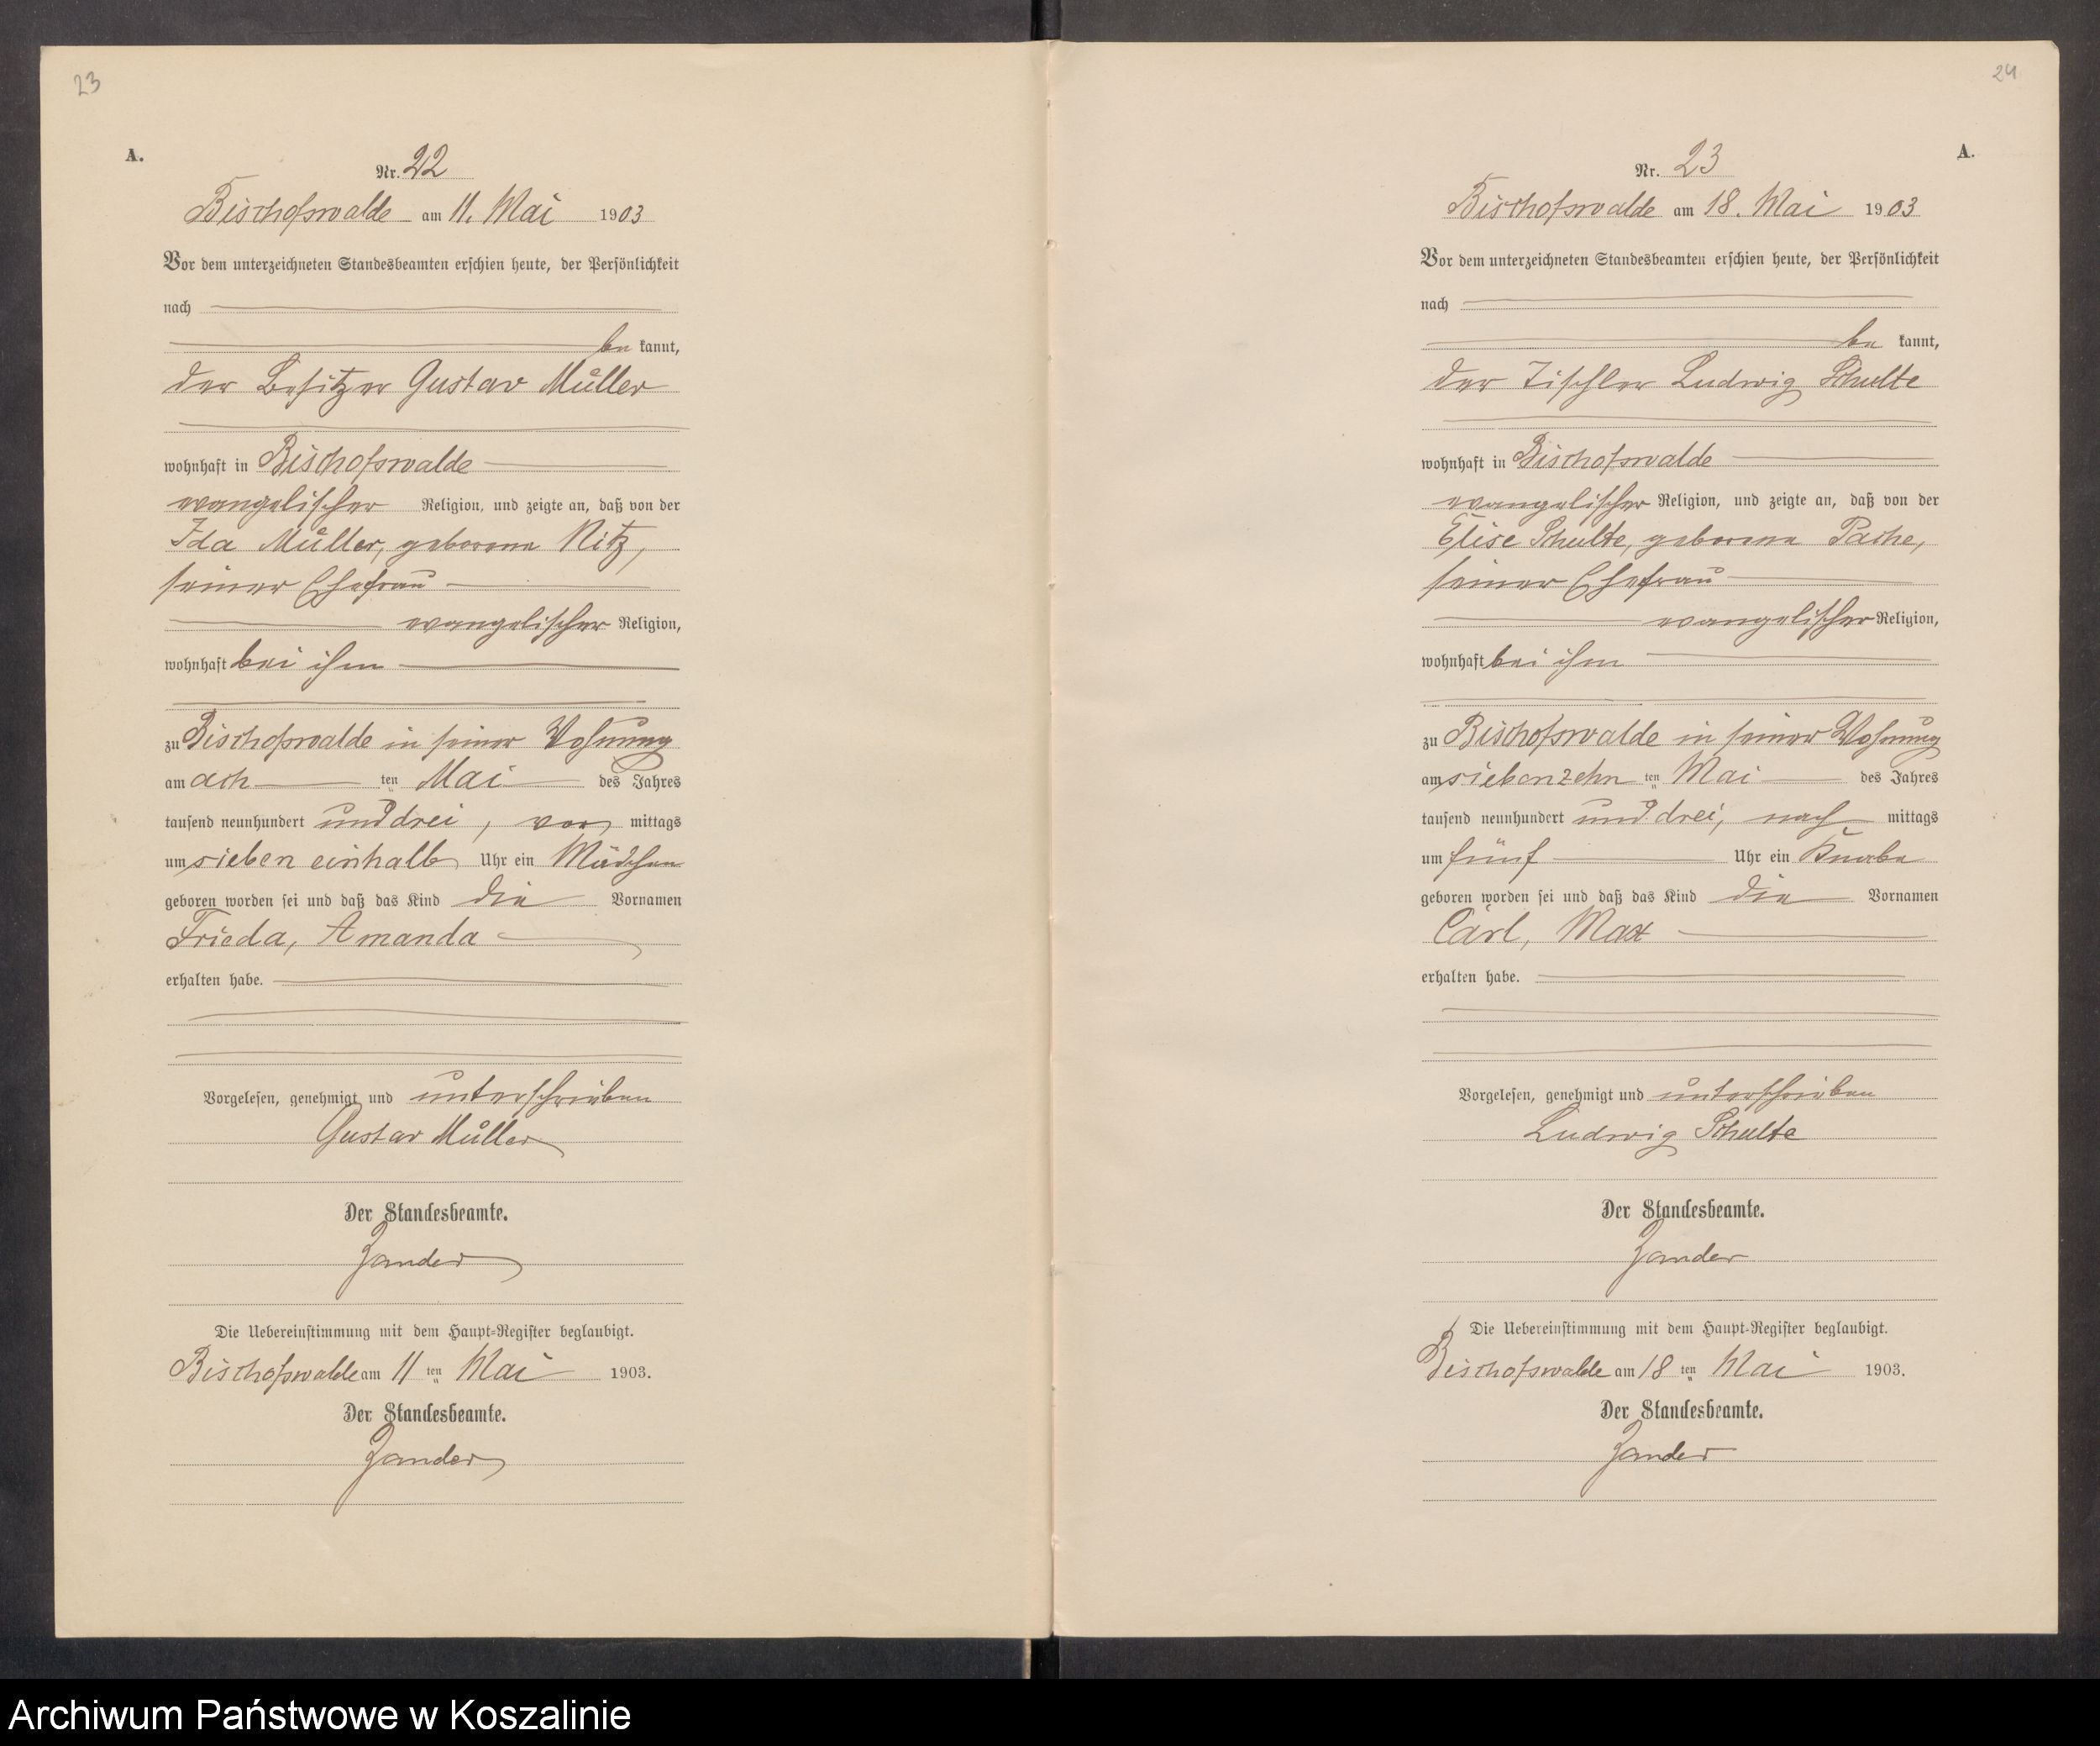 23
A.
Nr. 22
Bischofswalde am 11. Mai 1903
Vor dem unterzeichneten Standesbeamten erschien heute, der Persönlichkeit
nach
be kannt,
der Besitzer Gustav Müller
wohnhaft in Bischofswalde
evangelischer Religion, und zeigte an, daß von der
Ida Müller, geborene Nitz,
seiner Ehefrau
evangelischer Religion,
wohnhaft bei ihm
zu Bischofswalde in seiner Wohnung
am ach ten Mai des Jahres
tausend neunhundert und drei, vor mittags
um sieben einhalb Uhr ein Mädchen
geboren worden sei und daß das Kind die Vornamen
Frieda, Amanda
erhalten habe.
Vorgelesen, genehmigt und unterschrieben
Gustav Müller
Der Standesbeamte.
Zander
Die Uebereinstimmung mit dem Haupt-Register beglaubigt.
Bischofswalde am 11 ten Mai 1903.
Der Standesbeamte.
Zander
24
A.
Nr. 23
Bischofswalde am 18. Mai 1903
Vor dem unterzeichneten Standesbeamten erschien heute, der Persönlichkeit
nach
be kannt,
der Tischler Ludwig Schulte
wohnhaft in Bischofswalde
evangelischer Religion, und zeigte an, daß von der
Elise Schulte, geborene Pache,
seiner Ehefrau
evangelischer Religion,
wohnhaft bei ihm
zu Bischofswalde in seiner Wohnung
am siebenzehn ten Mai des Jahres
tausend neunhundert und drei, nach mittags
um fünf Uhr ein Knabe
geboren worden sei und daß das Kind die Vornamen
Carl, Max
erhalten habe.
Vorgelesen, genehmigt und unterschrieben
Ludwig Schulte
Der Standesbeamte.
Zander
Die Uebereinstimmung mit dem Haupt-Register beglaubigt.
Bischofswalde am 18 ten Mai 1903.
Der Standesbeamte.
Zander
Archiwum Państwowe w Koszalinie